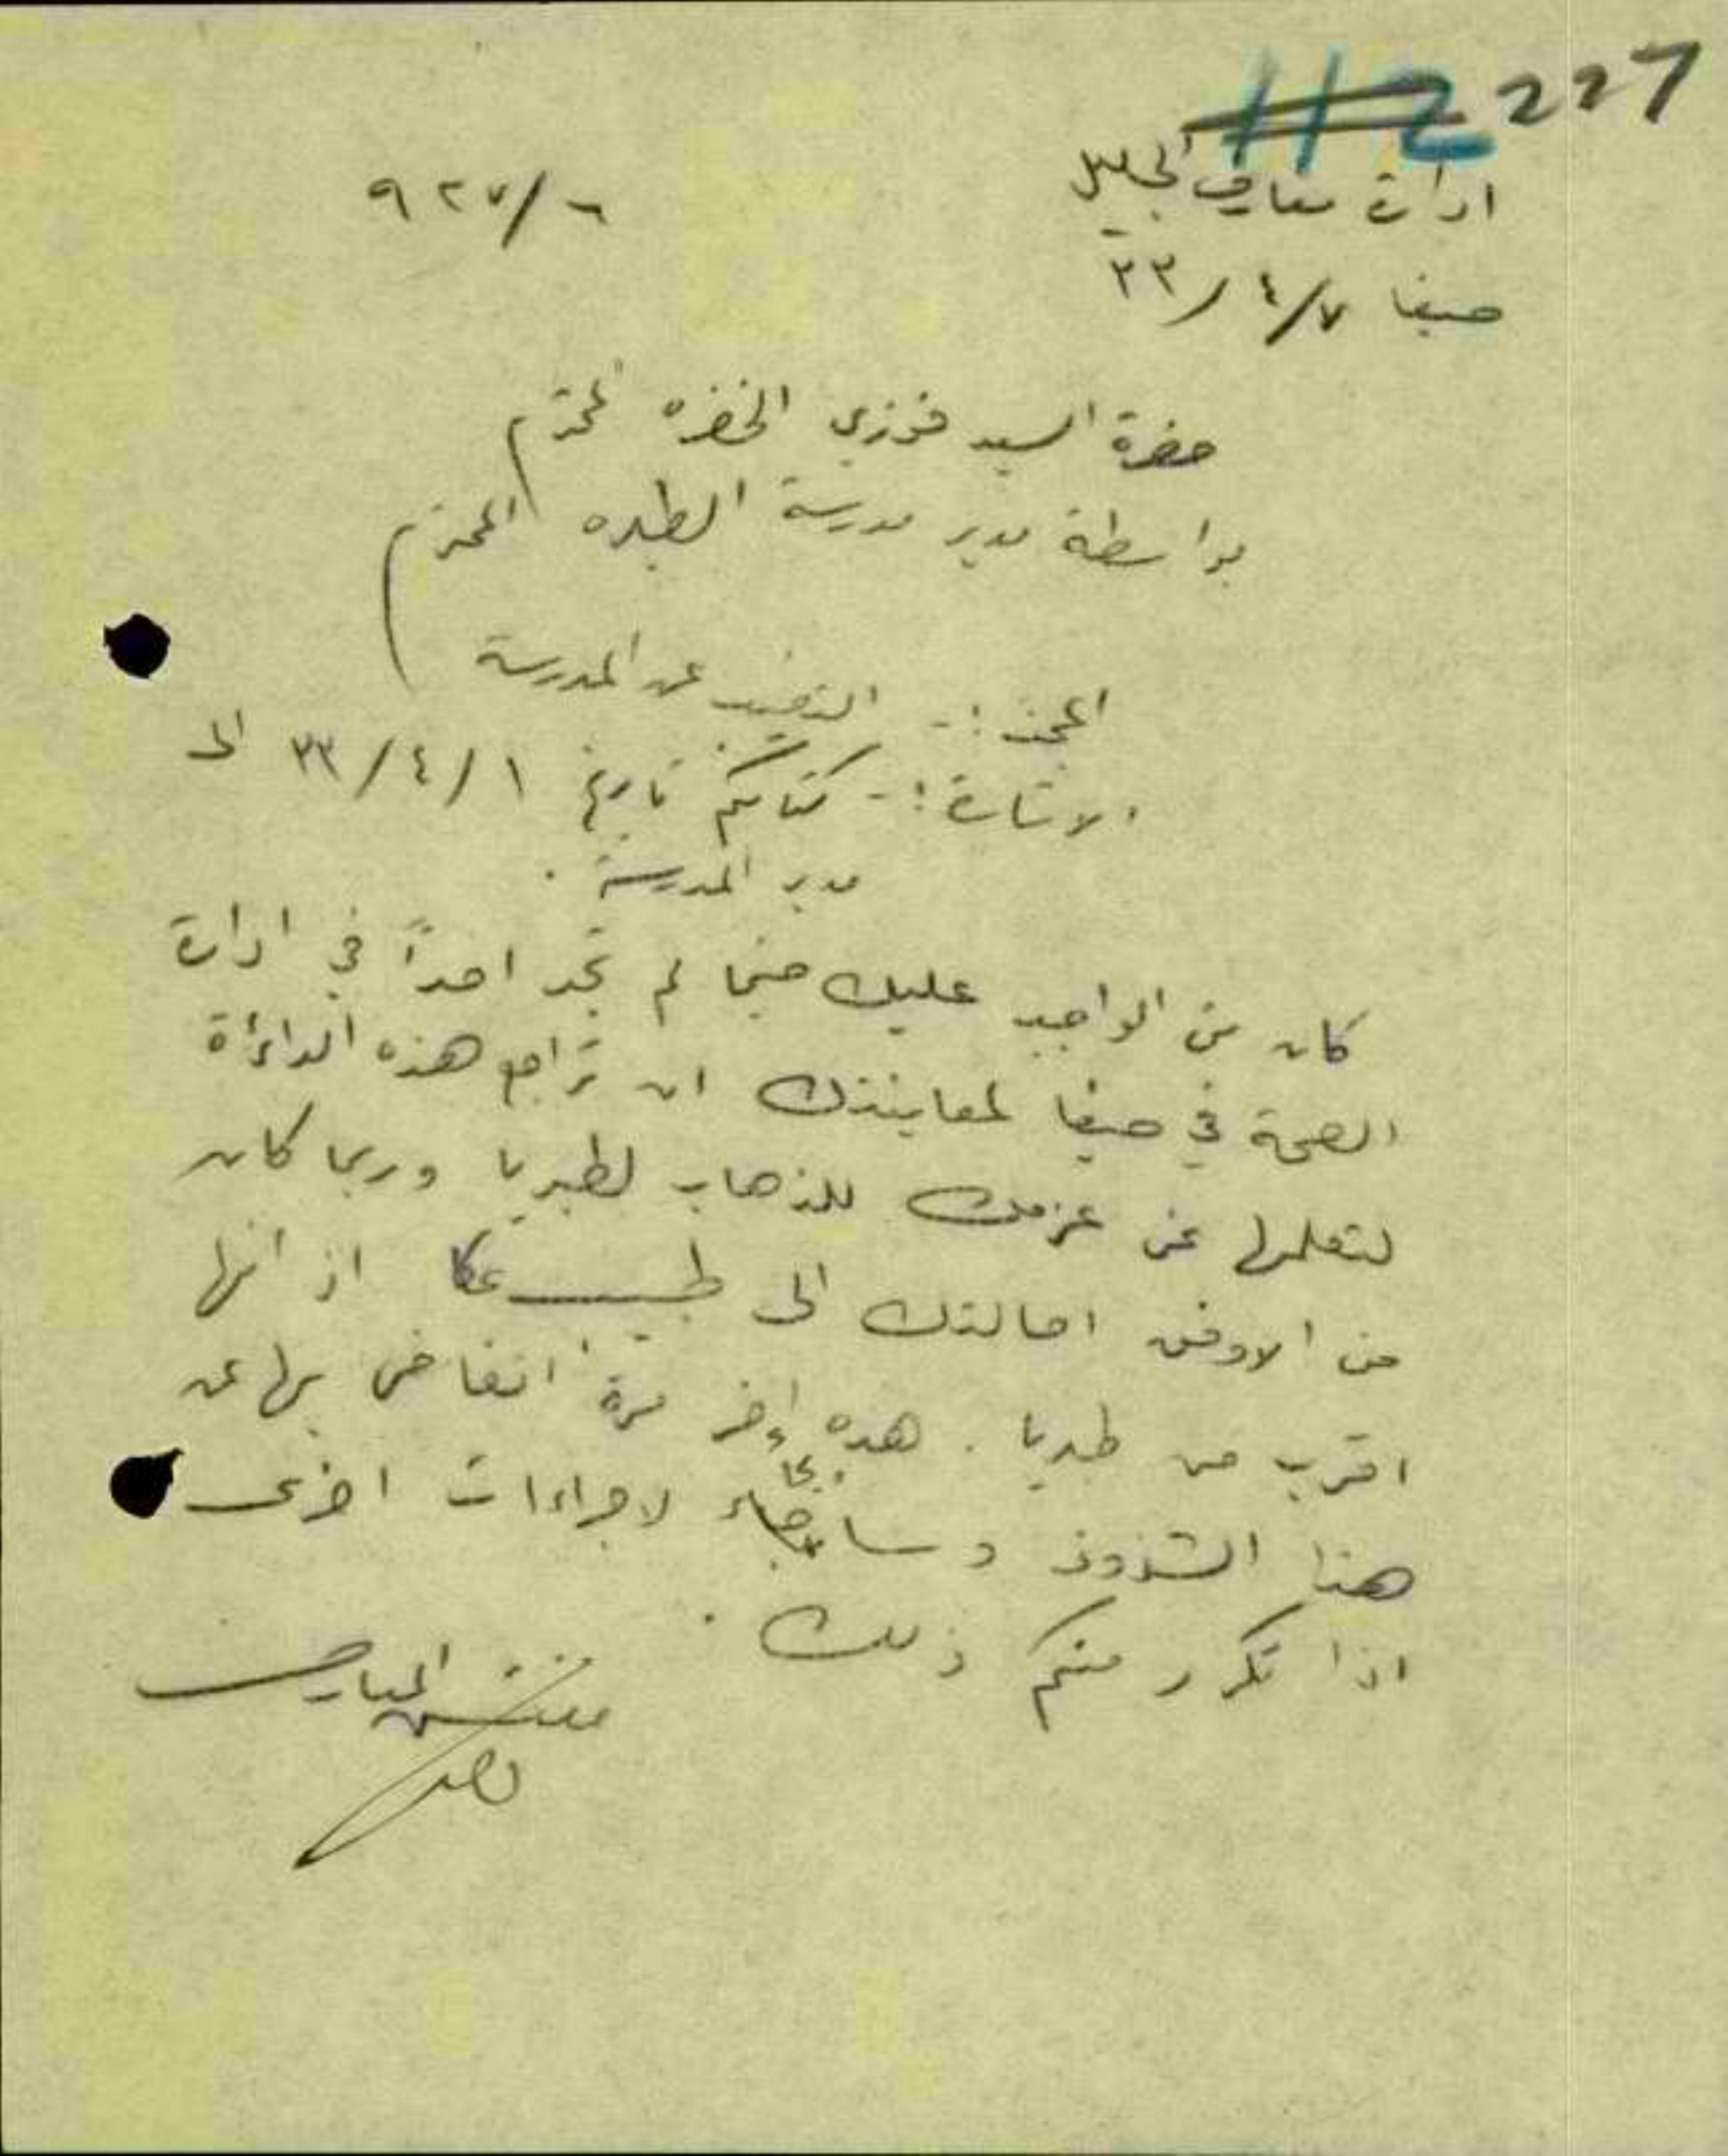 227
112
ادارة معارف الجليل
٩٢٧/٦
حيفا ٧/٤/٣٣
حضرة السيد فوزي الخضره المحترم
بواسطة مدير مدرسة الطيره المحترم
المبحث :- التغيب عن المدرسة
الاشارة :- كتابكم تاريخ ١/٤/٣٣ الى
مدير المدرسة .
كان من الواجب عليك حينما لم تجد احداً في ادارة
الصحة في حيفا لمعاينتك ان تراجع هذه الدائرة
لتعلمها عن عزمك للذهاب لطبريا وربما كان
من الاوفق احالتك الى طبيب عكا اذ انها
اقرب من طبريا . هذه اخر مرة اتغاضى بها عن
هذا الشذوذ لاجراءات اخرى
اذا تكرر منكم ذلك .
مفتش المعارف